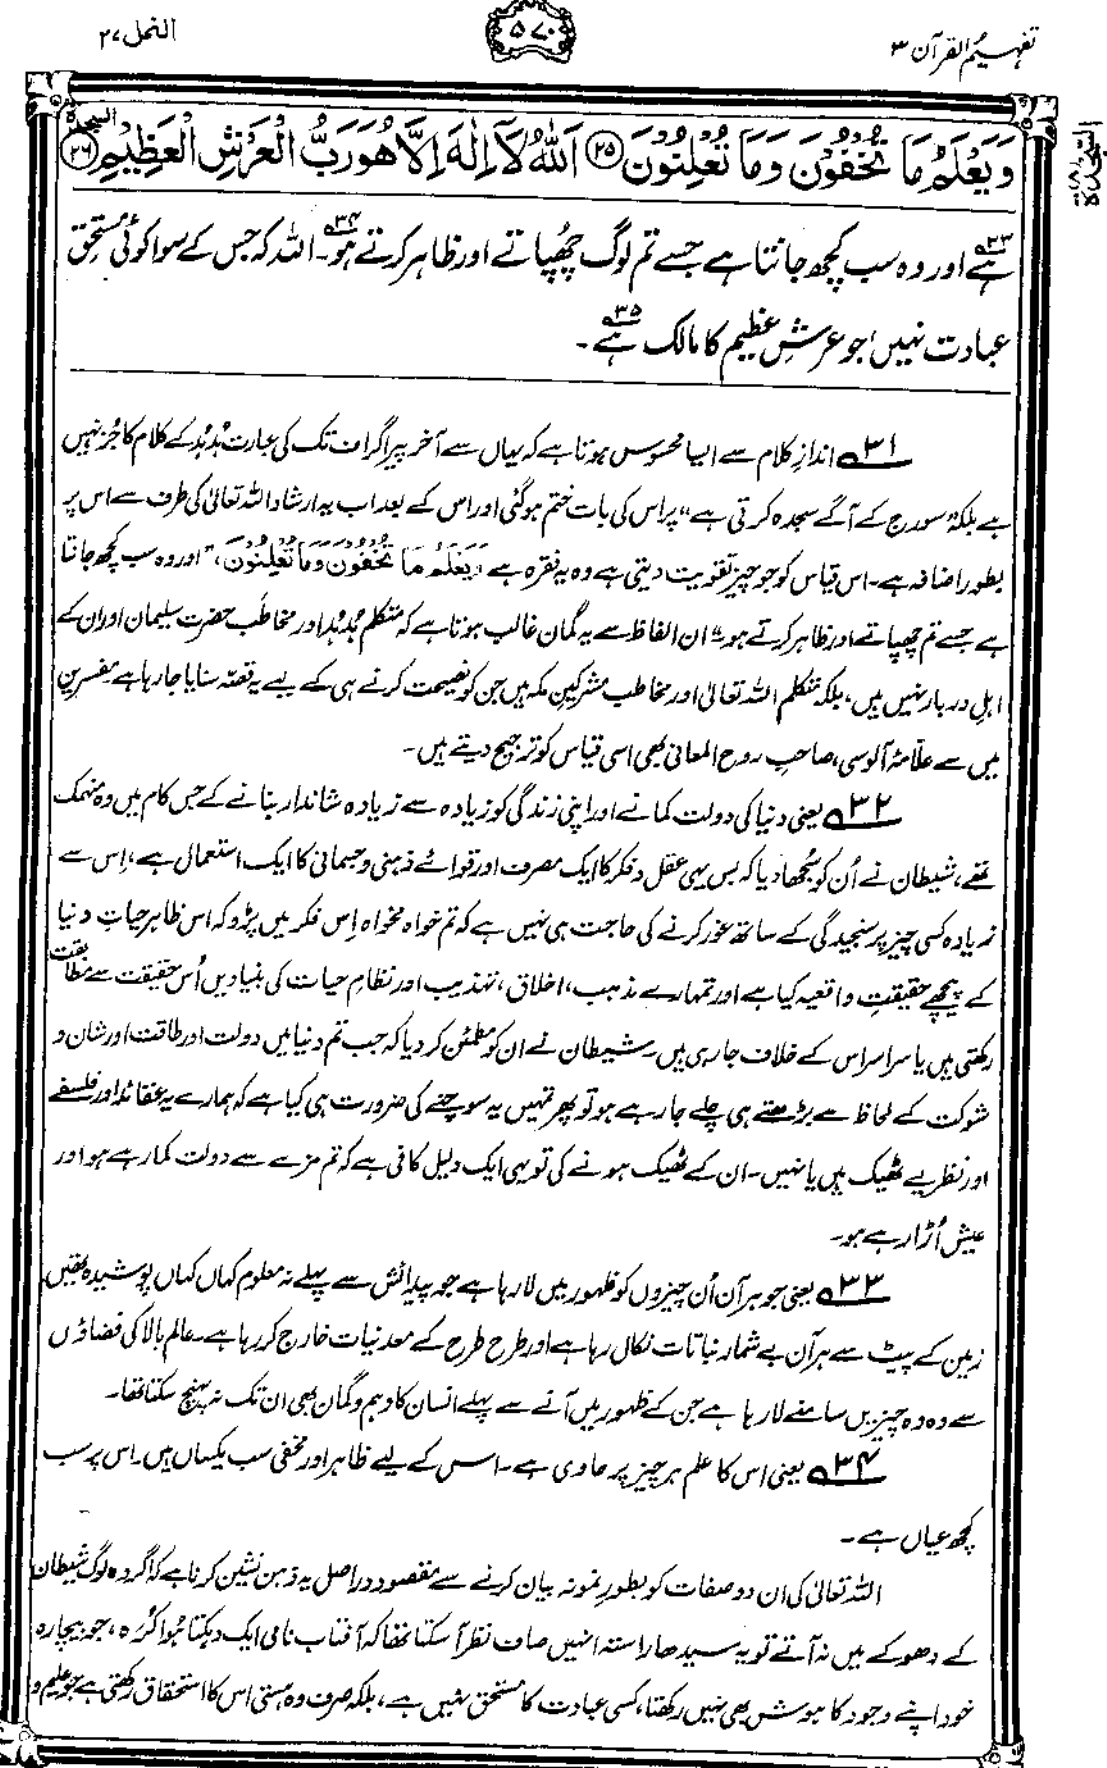 تفہیم القرآن ۳
۵۷۰
النمل ۲۷
وَيَعْلَمُ مَا تُخْفُوْنَ وَمَا تُعْلِنُوْنَ ﴿۲۵﴾ اَللّٰهُ لَاۤ اِلٰهَ اِلَّا هُوَ رَبُّ الْعَرْشِ الْعَظِيْمِ ﴿۲۶﴾ السجدة
السجدة ۸
ہے۳۳ اور وہ سب کچھ جانتا ہے جسے تم لوگ چھُپاتے اور ظاہر کرتے ہو۳۴۔ اللہ کہ جس کے سوا کوئی مستحقِ
عبادت نہیں، جو عرشِ عظیم کا مالک ہے۳۵۔
۳۱ اندازِ کلام سے ایسا محسوس ہوتا ہے کہ یہاں سے آخر پیراگراف تک کی عبارت ہُدہُد کے کلام کا جُز نہیں
ہے بلکہ ”سورج کے آگے سجدہ کرتی ہے“ پر اس کی بات ختم ہو گئی اور اس کے بعد اب یہ ارشاد اللہ تعالیٰ کی طرف سے اس پر
بطور اضافہ ہے۔ اس قیاس کو جو چیز تقویت دیتی ہے وہ یہ فقرہ ہے وَيَعْلَمُ مَا تُخْفُوْنَ وَمَا تُعْلِنُوْنَ، ”اور وہ سب کچھ جانتا
ہے جسے تم چھپاتے اور ظاہر کرتے ہو“۔ ان الفاظ سے یہ گمان غالب ہوتا ہے کہ متکلم ہُدہُد اور مخاطَب حضرت سلیمان اور ان کے
اہلِ دربار نہیں ہیں، بلکہ متکلم اللہ تعالیٰ اور مخاطب مشرکینِ مکہ ہیں جن کو نصیحت کرنے ہی کے لیے یہ قصہ سنایا جا رہا ہے۔ مفسرین
میں سے علّامہ آلوسی، صاحبِ روح المعانی بھی اسی قیاس کو ترجیح دیتے ہیں۔
۳۲ یعنی دنیا کی دولت کمانے اور اپنی زندگی کو زیادہ سے زیادہ شاندار بنانے کے جس کام میں وہ منہمک
تھے، شیطان نے اُن کو سُجھا دیا کہ بس یہی عقل و فکر کا ایک مصرف اور قوائے ذہنی و جسمانی کا ایک استعمال ہے، اِس سے
زیادہ کسی چیز پر سنجیدگی کے ساتھ غور کرنے کی حاجت ہی نہیں ہے کہ تم خواہ مخواہ اِس فکر میں پڑو کہ اس ظاہر حیاتِ دنیا
کے پیچھے حقیقتِ واقعیہ کیا ہے اور تمہارے مذہب، اخلاق، تہذیب اور نظامِ حیات کی بنیادیں اُس حقیقت سے مطابقت
رکھتی ہیں یا سراسر اس کے خلاف جا رہی ہیں۔ شیطان نے ان کو مطمئن کر دیا کہ جب تم دنیا میں دولت اور طاقت اور شان و
شوکت کے لحاظ سے بڑھتے ہی چلے جا رہے ہو تو پھر تمہیں یہ سوچنے کی ضرورت ہی کیا ہے کہ ہمارے یہ عقائد اور فلسفے
اور نظریے ٹھیک ہیں یا نہیں۔ ان کے ٹھیک ہونے کی تو یہی ایک دلیل کافی ہے کہ تم مزے سے دولت کما رہے ہو اور
عیش اُڑا رہے ہو۔
۳۳ یعنی جو ہر آن اُن چیزوں کو ظہور میں لا رہا ہے جو پیدائش سے پہلے نہ معلوم کہاں کہاں پوشیدہ تھیں۔
زمین کے پیٹ سے ہر آن بے شمار نباتات نکال رہا ہے اور طرح طرح کے معدنیات خارج کر رہا ہے۔ عالمِ بالا کی فضاؤں
سے وہ وہ چیزیں سامنے لا رہا ہے جن کے ظہور میں آنے سے پہلے انسان کا وہم و گمان بھی ان تک نہ پہنچ سکتا تھا۔
۳۴ یعنی اس کا علم ہر چیز پر حاوی ہے۔ اس کے لیے ظاہر اور مخفی سب یکساں ہیں۔ اس پر سب
کچھ عیاں ہے۔
اللہ تعالیٰ کی ان دو صفات کو بطور نمونہ بیان کرنے سے مقصود دراصل یہ ذہن نشین کرنا ہے کہ اگر وہ لوگ شیطان
کے دھوکے میں نہ آتے تو یہ سیدھا راستہ انہیں صاف نظر آ سکتا تھا کہ آفتاب نامی ایک دہکتا ہُوا کُرہ، جو بیچارہ
خود اپنے وجود کا ہوش بھی نہیں رکھتا، کسی عبادت کا مستحق نہیں ہے، بلکہ صرف وہ ہستی اس کا استحقاق رکھتی ہے جو علیم و